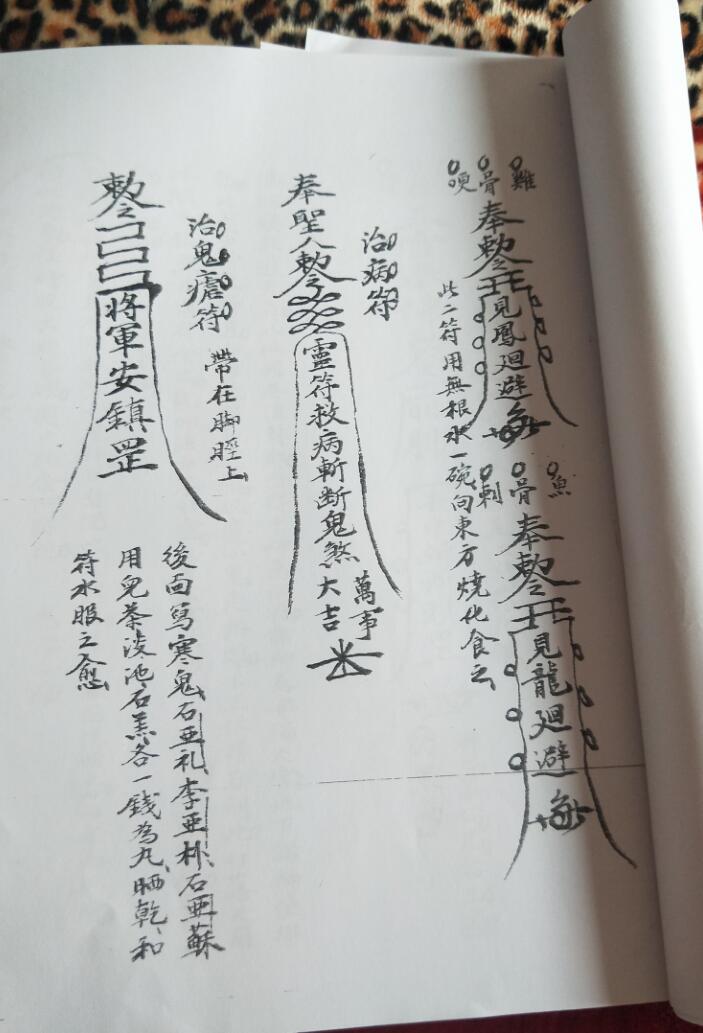 雞
骨
哽
奉敕令
見鳳廻避
此二符用無根水一碗向東方燒化食之
魚
骨
刺
奉敕令
見龍廻避
治病符
奉聖人敕令
靈符救病斬斷鬼煞
萬事
大吉
治鬼瘧符
帶在脚脛上
敕令
將軍安鎮罡
後面写寒鬼石亚礼李亚林石亚蘇
用兒茶淡池石羔各一錢為丸晒乾和
符水服之愈